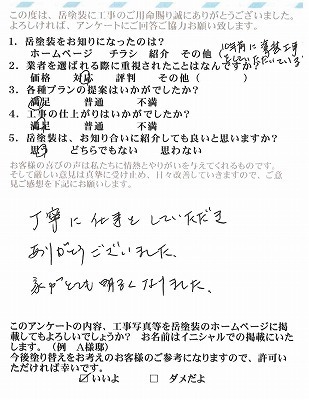 この度は、岳塗装に工事のご用命賜り誠にありがとうございました。
よろしければ、アンケートにご回答ご協力お願い致します。
1. 岳塗装をお知りになったのは?
ホームページ チラシ 紹介 その他(
2. 業者を選ばれる際に重視されたことはなんですか?
価格 対応 評判 その他( )
3. 各種プランの提案はいかがでしたか?
満足 普通 不満
4. 工事の仕上がりはいかがでしたか?
満足 普通 不満
5. 岳塗装は、お知り合いに紹介しても良いと思いますか?
思う どちらでもない 思わない
お客様の喜びの声は私たちに情熱とやりがいを与えてくれるものです。
そして厳しい意見は真摯に受け止め、日々改善していきますので、ご意
見ご感想を下記にお願いします。
丁寧に仕事をしていただき
ありがとうございました。
家がとても明るくなりました。
このアンケートの内容、工事写真等を岳塗装のホームページに掲
載してもよろしいでしょうか? お名前はイニシャルでの掲載にいた
します。(例 A様邸)
今後塗り替えをお考えのお客様のご参考になりますので、許可い
ただければ幸いです。
☑いいよ □ ダメだよ